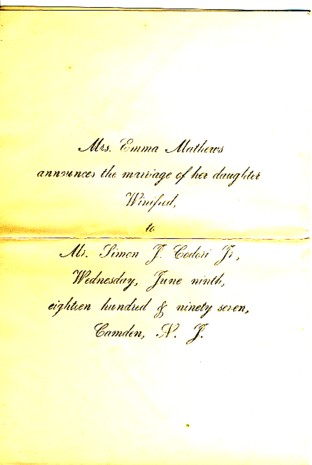 Mrs. Emma Mathews
announces the marriage of her daughter
Winifred,
to
Mr. Simon J. Codori Jr,
Wednesday, June ninth,
eighteen hundred & ninety seven,
Camden, N. J.